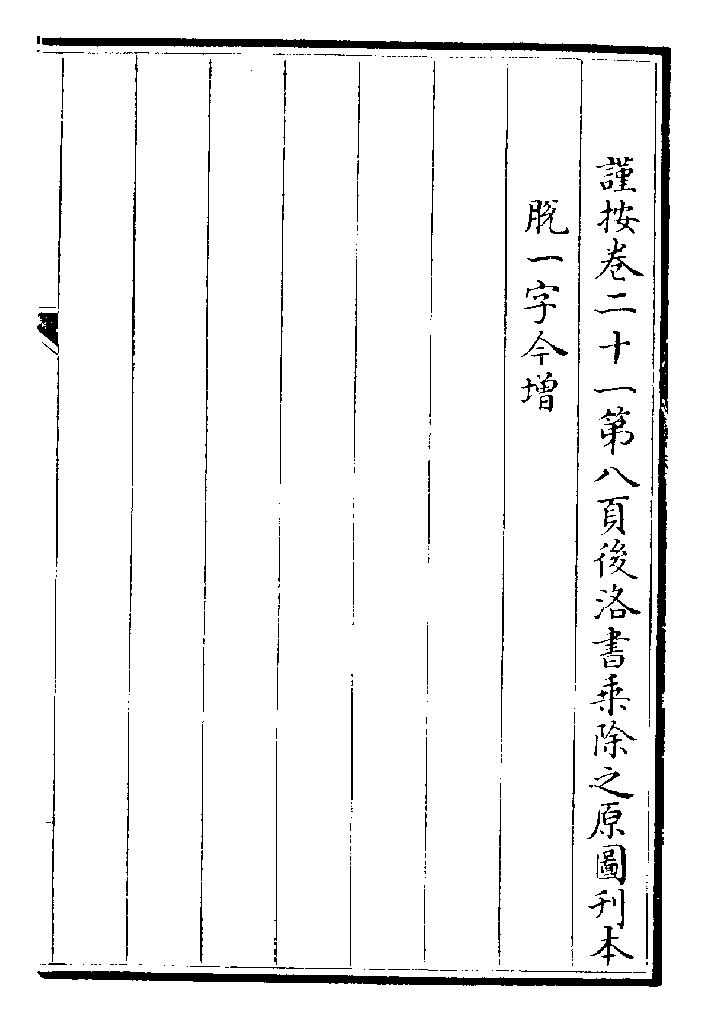 謹按卷二十一第八頁後洛書乗除之原圖刋本
脱一字今増